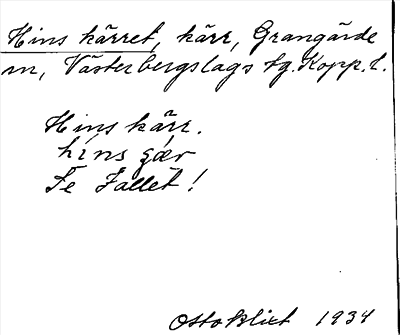 Hins kärret, kärr, Grangärde
sn, Västerbergslags tg. Kopp. l.
Hins kärr.
híns gær
Se Fallet!
Otto Blixt 1934